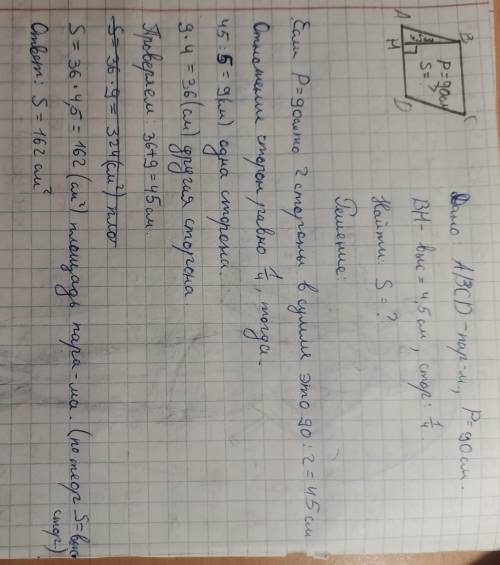 A
B
H
D
C
P=90см
S=?
Дано: ABCD-пар-м, P=90см.
BH- выс=4,5см, стор: 1/4
Найти: S=?
Решение:
Если P=90см то 2 стороны в сумме это 90:2=45см
Отношение сторон равно 1/4, тогда-
45:5=9(см) одна сторона.
9·4=36(см) другая сторона
Проверяем: 36+9=45см.
S=36·9=324(см²) пло
S=36·4,5=162(см²) площадь пара-ма. (по теор S=выс·
стор)
Ответ: S=162см²